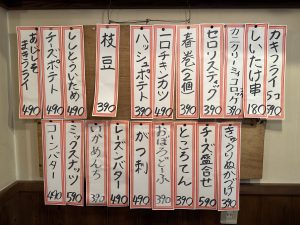 カキフライ 5コ 490
しいたけ串 180
カニクリーミィコロッケ 390
セロリスティック 390
春巻(2個) 390
一口チキンカツ 490
ハッシュポテト 390
枝豆 390
ししとういため 490
チーズポテト 490
あじしそまきフライ 490
きゅうりぬか漬け 390
チーズ盛合せ 590
ところてん 390
おぼろどーふ 390
がつ刺 490
レーズンバター 490
いかめんち 390
ミックスナッツ 590
コーンバター 490